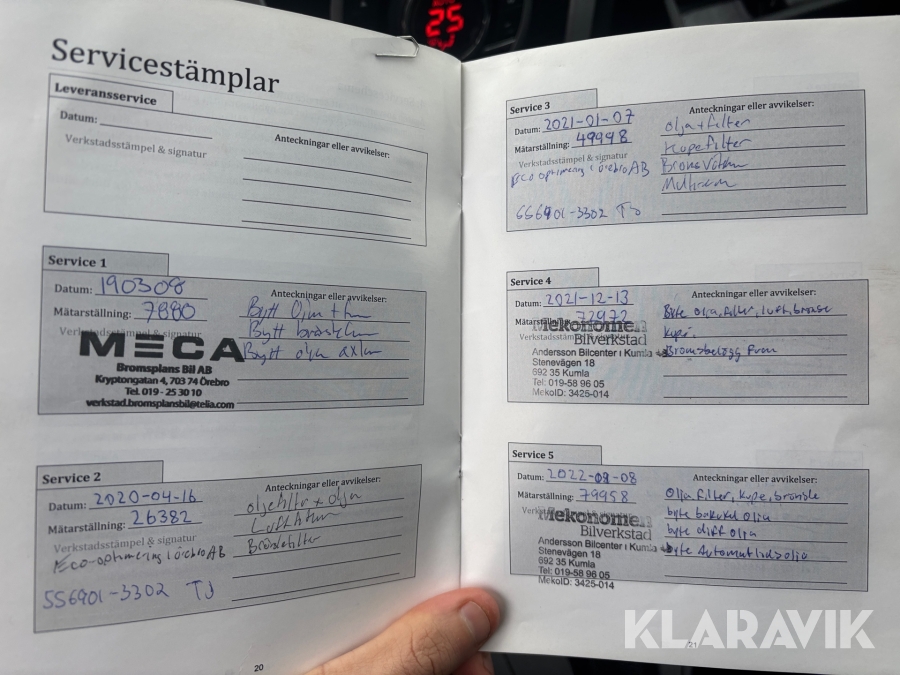 25
Servicestämplar
Leveransservice
Datum:
Verkstadsstämpel & signatur
Anteckningar eller avvikelser:
Service 1
Datum: 190308
Mätarställning: 7880
Verkstadsstämpel & signatur
MECA
Bromsplans Bil AB
Kryptongatan 4, 703 74 Örebro
Tel. 019 - 25 30 10
verkstad.bromsplansbil@telia.com
Anteckningar eller avvikelser:
Bytt
Bytt
Bytt olja
Service 2
Datum: 2020-04-16
Mätarställning: 26382
Verkstadsstämpel & signatur
Eco-optimering i örebro AB
556901-3302 TJ
Anteckningar eller avvikelser:
oljefilter + olja
Luftfilter
Bränslefilter
20
Service 3
Datum: 2021-01-07
Mätarställning: 49998
Verkstadsstämpel & signatur
Eco optimering i örebro AB
556901-3302 TJ
Anteckningar eller avvikelser:
olja + filter
Kupefilter
Service 4
Datum: 2021-12-13
Mätarställning: 72972
Mekonomen
Bilverkstad
Andersson Bilcenter i Kumla
Stenevägen 18
692 35 Kumla
Tel: 019-58 96 05
MekoID: 3425-014
Anteckningar eller avvikelser:
Byte olja, filter, luft, bränsle
kupé.
Bromsbelägg fram
Service 5
Datum: 2022-09-08
Mätarställning: 79958
Mekonomen
Bilverkstad
Andersson Bilcenter i Kumla
Stenevägen 18
692 35 Kumla
Tel: 019-58 96 05
MekoID: 3425-014
Anteckningar eller avvikelser:
Olja filter, kupe, bränsle
byte olja
byte diff olja
byte Automatlådsolja
21
KLARAVIK